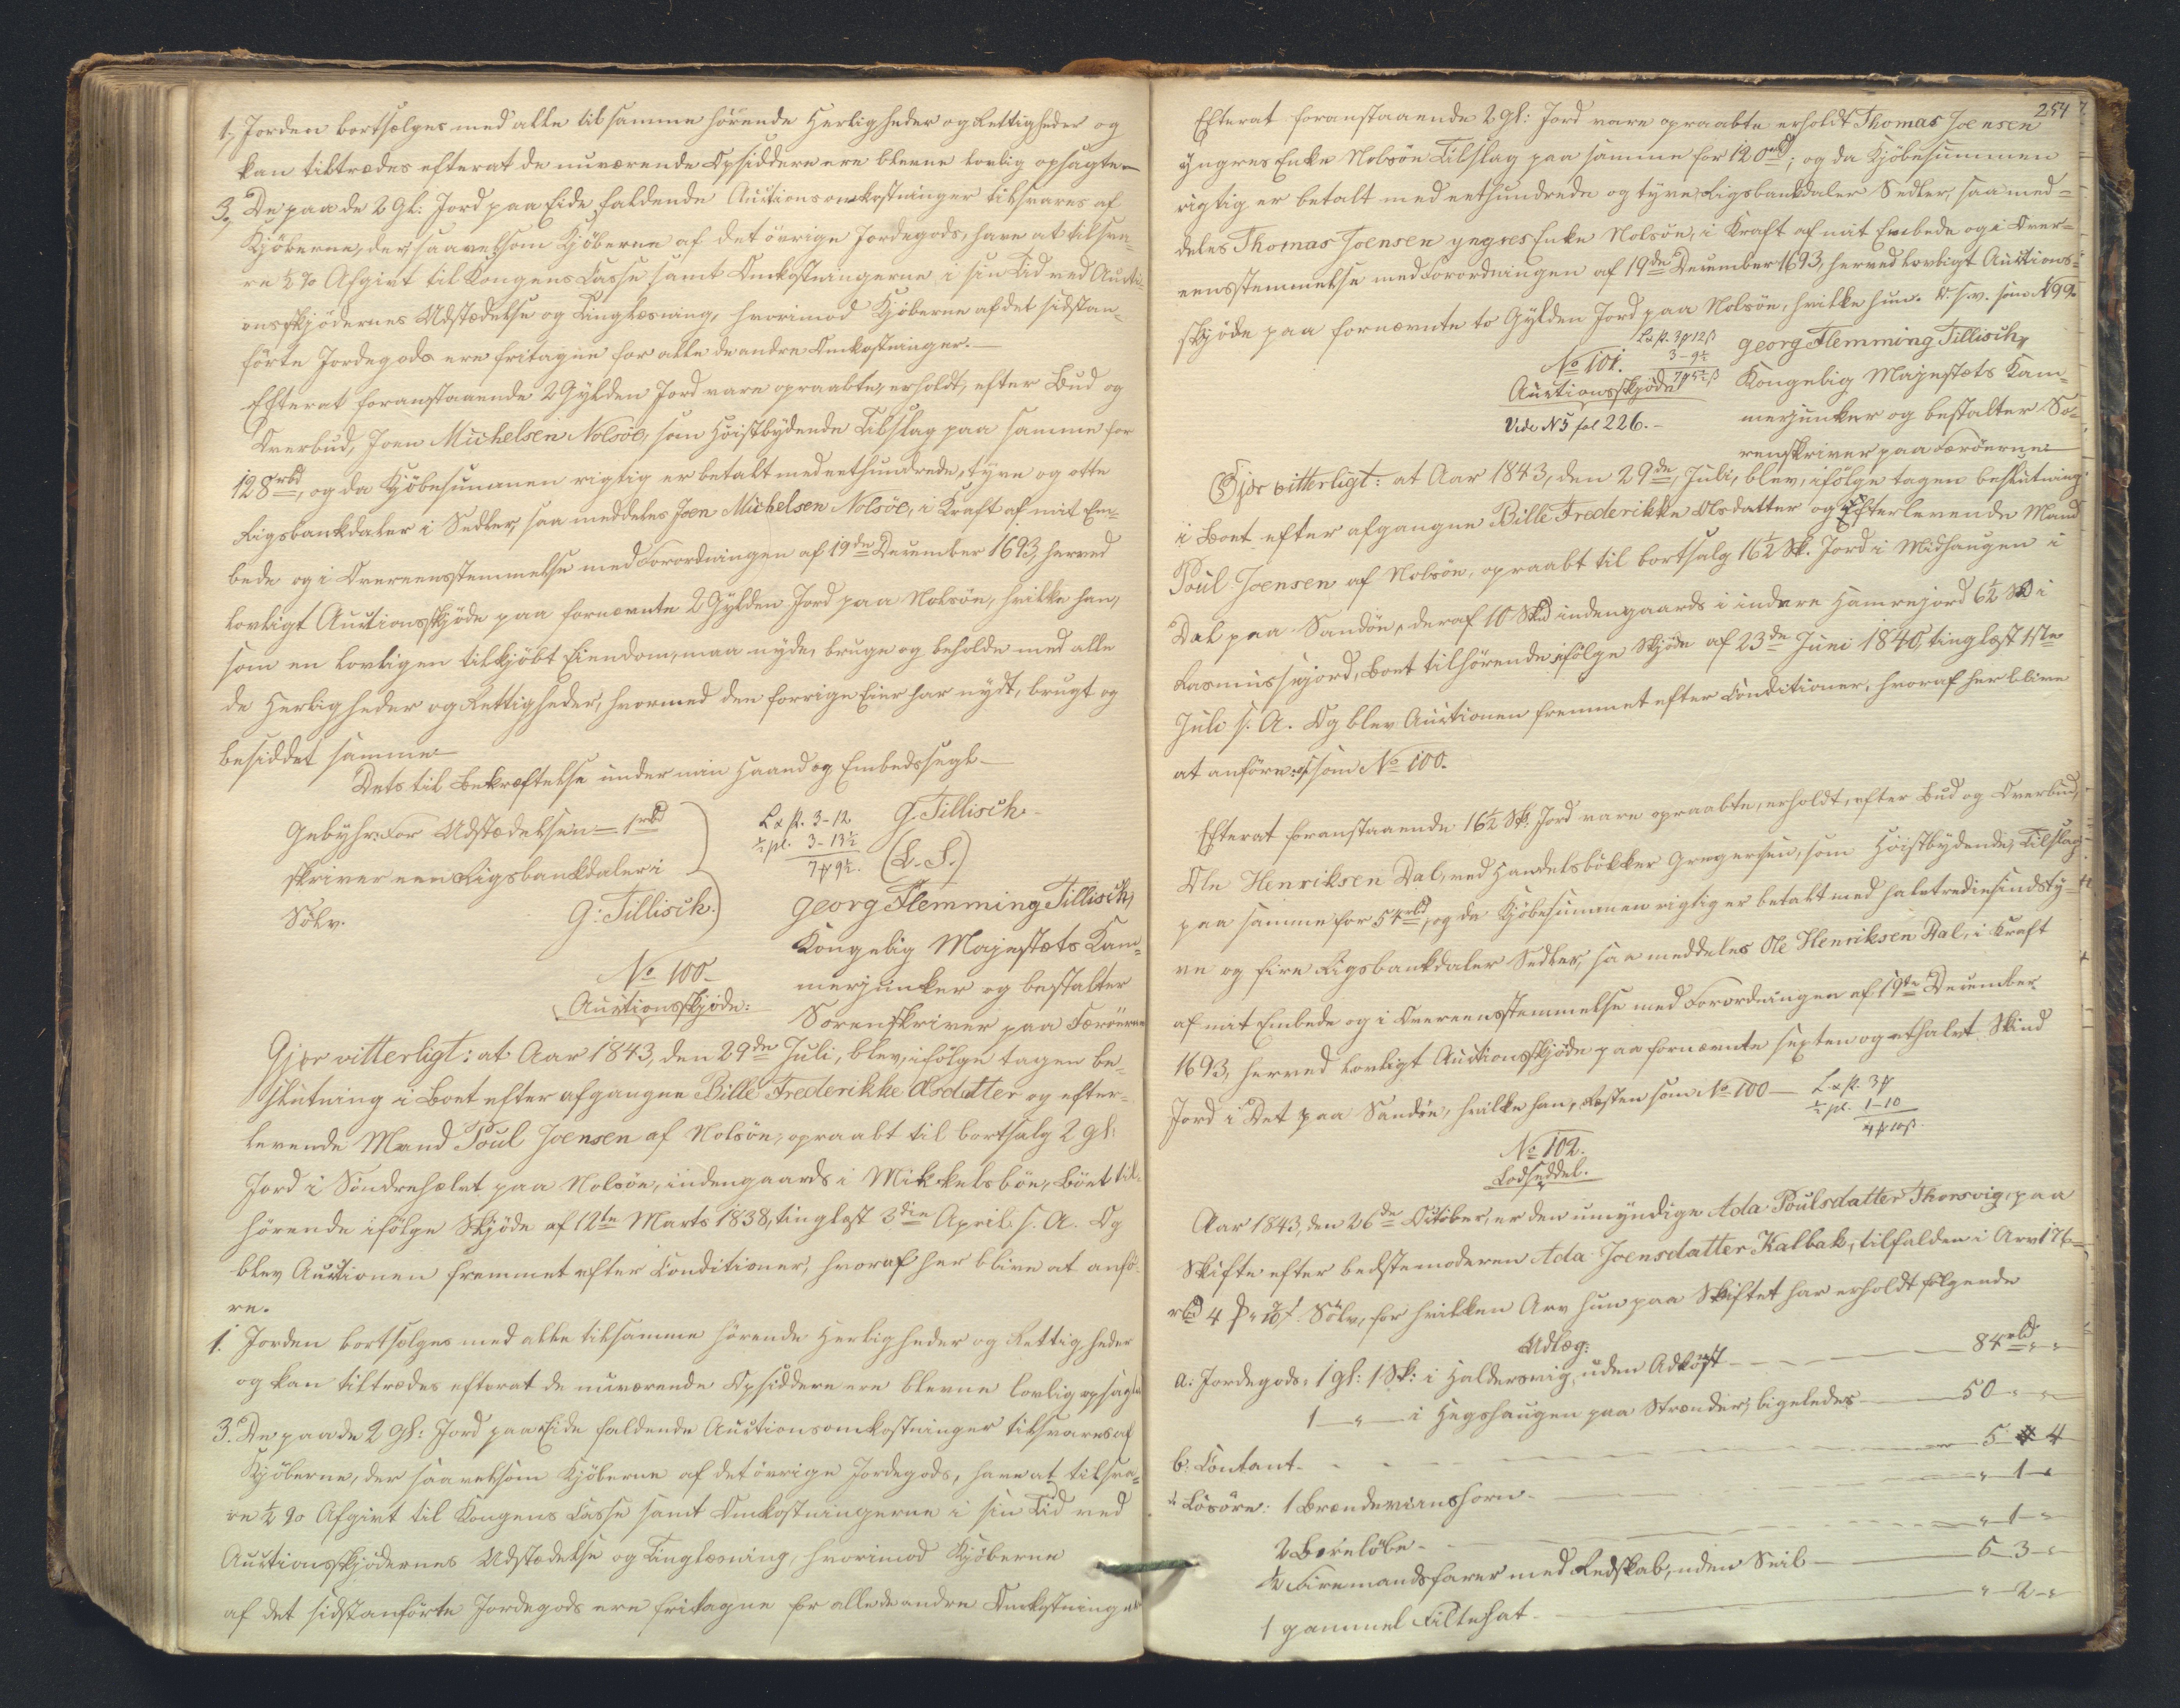 1, Jorden bortsælges med alle til samme hörende Herligheder og Rettigheder og
kan tiltrædes efterat de nuværende Opsiddere ere blevne lovlig opsagte.
3, De paa de 2 Gl: Jord paa Eide faldende Auctionsomkostninger tilsvares af
Kjöberne, der, saavelsom Kjöberne af det övrige Jordegods, have at tilsva-
re ½ % Afgivt til Kongens Casse samt Omkostningerne i sin Tid ved Aucti-
onsskjödernes Udstædelse og Tinglæsning, hvorimod Kjöberne af det sidstan-
förte Jordegods ere fritagne for alle de andre Omkostninger.
Efterat foranstaaende 2 Gylden Jord vare opraabte, erholdt, efter Bud og
Overbud, Joen Michelsen Nolsöe, som Höistbydende Tilslag paa samme for
128 rbd, og da Kjöbesummen rigtig er betalt med eethundrede, tyve og otte
Rigsbankdaler i Sedler, saa meddeles Joen Michelsen Nolsöe, i Kraft af mit Em-
bede og i Overeensstemmelse med Forordningen af 19de December 1693, herved
lovligt Auctionsskjöde paa fornævnte 2 Gylden Jord paa Nolsöe, hvilke han,
som en lovligen tilkjöbt Eiendom, maa nyde, bruge og beholde med alle
de Herligheder og Rettigheder, hvormed den forrige Eier har nydt, brugt og
besiddet samme.
Dets til Bekræftelse under min Haand og Embedssegl.
Gebyhr for Udstædelsen 1 rbd
skriver een Rigsbankdaler i
Sölv. G: Tillisch.
L & p. 3-12
½ pl. 3-13½
7 # 9½.
G. Tillisch.
(L. S.)
No 100.
Auctionsskjöde:
Georg Flemming Tillisch,
Kongelig Majestæts Kam-
merjunker og bestalter
Sorenskriver paa Færöerne
Gjör vitterligt: at Aar 1843, den 29de Juli, blev, ifölge tagen be-
slutning i Boet efter afgangne Bille Frederikke Olsdatter og efter-
levende Mand Poul Joensen af Nolsöe, opraabt til bortsalg 2 gl:
Jord i Söndrehælvt paa Nolsöe, indengaards i Mikkelsböe, Boet til-
hörende ifölge Skjöde af 12te Marts 1838, tinglæst 3die April s. A. Og
blev Auctionen fremmet efter Conditioner, hvoraf her blive at anfö-
re.
1. Jorden bortsælges med alle til samme hörende Herligheder og Rettigheder
og kan tiltrædes efterat de nuværende Opsiddere ere blevne lovlig opsagte
3. De paa de 2 Gl: Jord paa Eide faldende Auctionsomkostninger tilsvares af
Kjöberne, der saavelsom Kjöberne af det övrige Jordegods, have at tilsva-
re ½ % Afgivt til Kongens Casse samt Omkostningerne i sin Tid ved
Auctionsskjödernes Udstædelse og Tinglæsning, hvorimod Kjöberne
af det sidstanförte Jordegods ere fritagne for alle de andre Omkostninger
254
Efterat foranstaaende 2 gl: Jord vare opraabte erholdt Thomas Joensen
yngres Enke Nolsöe Tilslag paa samme for 120 rbd; og da Kjöbesummen
rigtig er betalt med eethundrede og tyve Rigsbankdaler Sedler, saa med-
deles Thomas Joensen yngres Enke Nolsöe, i Kraft af mit Embede og i Over-
eensstemmelse med Forordningen af 19de December 1693, herved lovligt Auctions-
skjöde paa fornævnte to Gylden Jord paa Nolsöe, hvilke hun. o. s. v. som N 99.
L & p. 3 # 12 ß
3 - 9½
7 # 5½ ß
No 101.
Auctionsskjöde
Vide N 5 fol 226.
Georg Flemming Tillisch,
Kongelig Majestæts Kam-
merjunker og bestalter So-
renskriver paa Færöerne
Gjör vitterligt: at Aar 1843, den 29de, Juli, blev, ifölge tagen beslutning
i Boet efter afgangne Bille Frederikke Olsdatter og Efterlevende Mand
Poul Joensen af Nolsöe, opraabt til bortsalg 16½ Sk. Jord i Midhaugen i
Dal paa Sandöe, deraf 10 Skd indengaards i indere Hamrejord 6½ Skd i
Rasmussejord, Boet tilhörende ifölge Skjöde af 23de Juni 1840, tinglæst 1ste
Juli s. A. Og blev Auctionen fremmet efter Conditioner, hvoraf her blive
at anföre: som No 100.
Efterat foranstaaende 16½ Sk. Jord vare opraabte, erholdt, efter Bud og Overbud,
Ole Henriksen Dal, ved Handelsbökker Gregersen, som Höistbydende, Tilslag
paa samme for 54 rbd, og da Kjöbesummen rigtig er betalt med halvtrediesindsty-
ve og fire Rigsbankdaler Sedler, saa meddeles Ole Henriksen Dal, i Kraft
af mit Embede og i Overeensstemmelse med Forordningen af 19de December
1693, herved lovligt Auctionsskjöde paa fornævnte sexten og ethalvt Skind
Jord i Dal paa Sandöe, hvilke han, Resten som No 100
L & p. 3 #
½ pl. 1-10
4 # 10 ß.
No 102.
Lodseddel.
Aar 1843, den 26de October, er den umyndige Ada Poulsdatter Thorsvig, paa
Skifte efter bedstemoderen Ada Joensdatter Kalbak, tilfalden i Arv 176
rbd 4 # 10 ß Sölv, for hvilken Arv hun paa Skiftet har erholdt fölgende
Udlæg:
a: Jordegods: 1 gl: 1 Sk: i Haldersvig, uden Adkomst 84 rbd " "
1 " i Hegshaugen paa Strænder, ligeledes 50 " "
b: Contant 5 4
Lösöre: 1 Brændeviinshorn " 1 "
2 Börelöbe " 1 "
½ Firemandsfarer med Redskab, uden Seil 5 3 "
1 gammel Filtehat " 2 "